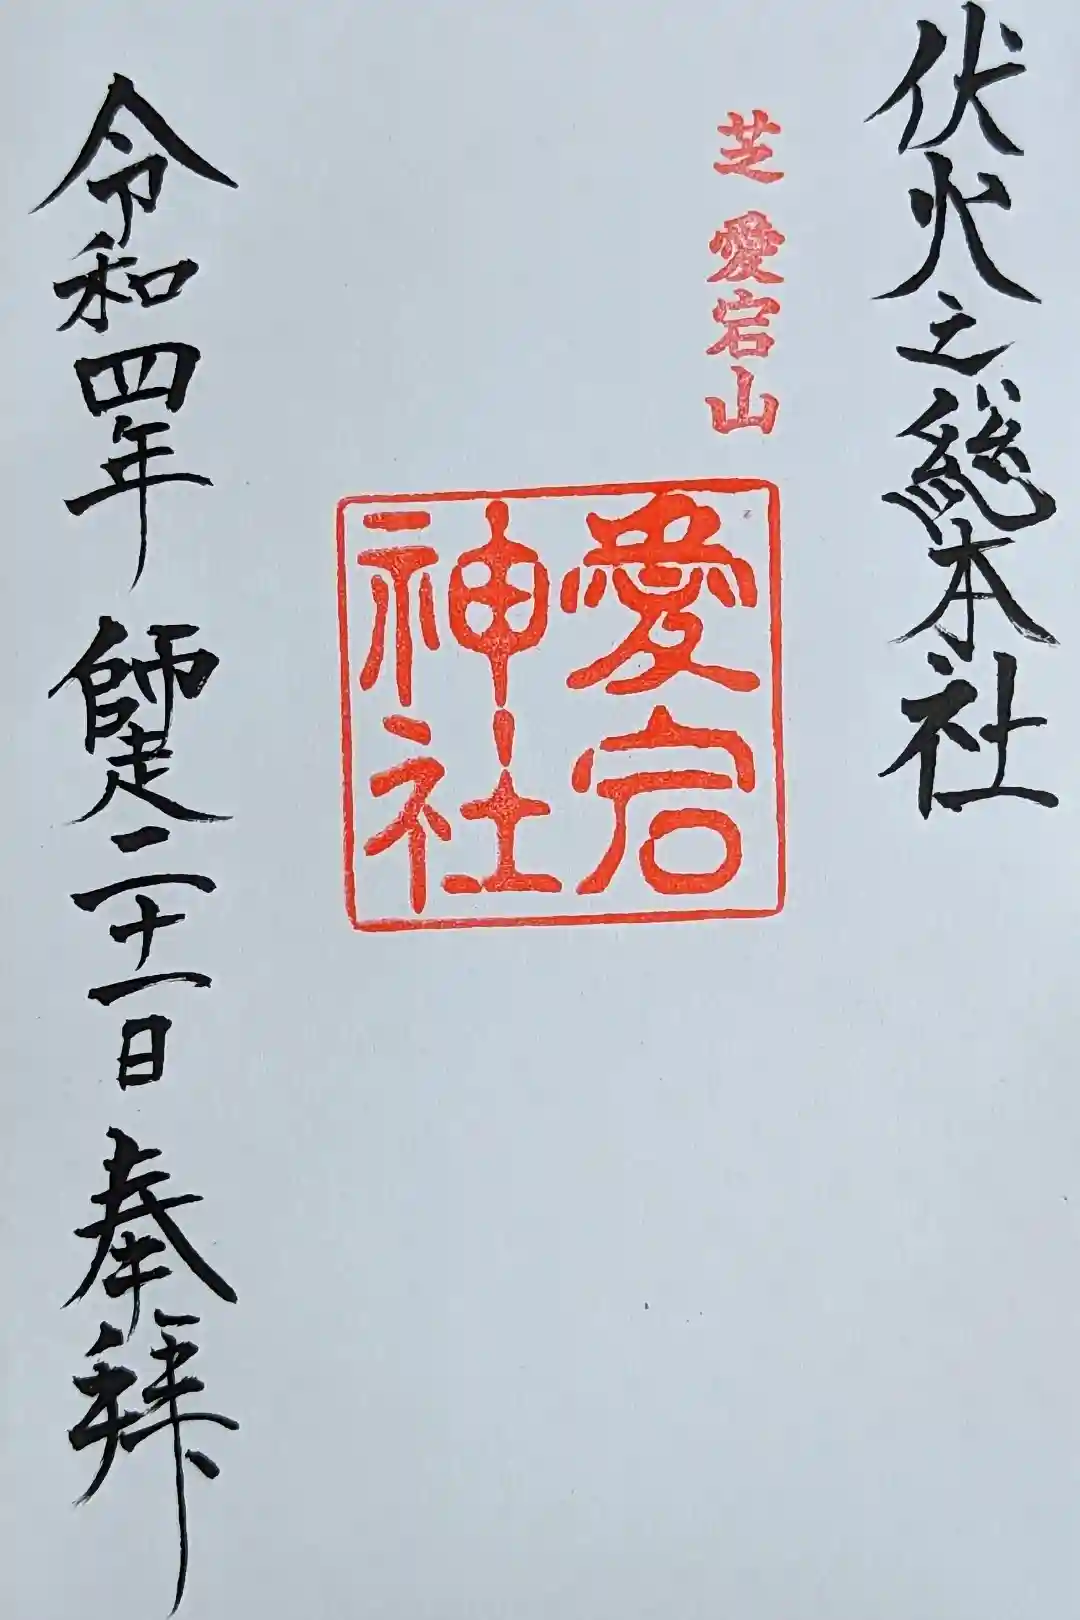 伏火之総本社
芝 愛宕山
愛宕
神社
令和四年 師走二十一日 奉拝